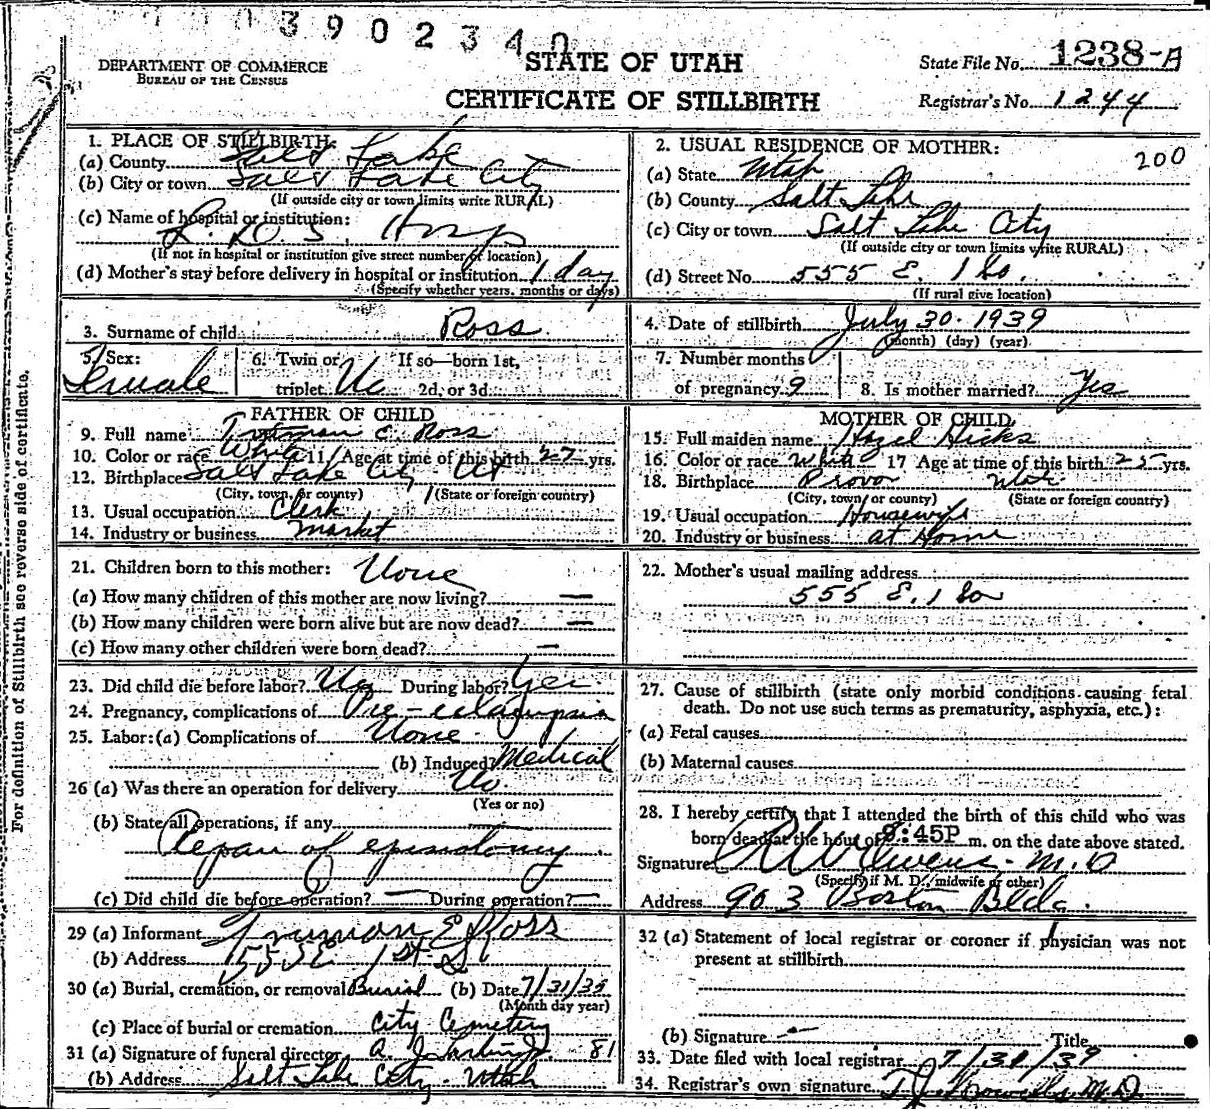 0390234
DEPARTMENT OF COMMERCE
BUREAU OF THE CENSUS
STATE OF UTAH
CERTIFICATE OF STILLBIRTH
State File No. 1238-A
Registrar's No. 1244
1. PLACE OF STILLBIRTH:
(a) County Salt Lake
(b) City or town Salt Lake City
(If outside city or town limits write RURAL)
(c) Name of hospital or institution:
L. D. S. Hosp
(If not in hospital or institution give street number or location)
(d) Mother's stay before delivery in hospital or institution 1 day
(Specify whether years, months or days)
2. USUAL RESIDENCE OF MOTHER:
200
(a) State Utah
(b) County Salt Lake
(c) City or town Salt Lake City
(If outside city or town limits write RURAL)
(d) Street No. 555 E. 1 So.
(If rural give location)
3. Surname of child Ross
4. Date of stillbirth July 30. 1939
(month) (day) (year)
5. Sex: Female
6. Twin or triplet No If so—born 1st, 2d, or 3d
7. Number months of pregnancy 9
8. Is mother married? Yes
FATHER OF CHILD
9. Full name Ross
10. Color or race White 11 Age at time of this birth 27 yrs.
12. Birthplace Salt Lake City Ut
(City, town, or county) (State or foreign country)
13. Usual occupation Clerk
14. Industry or business market
MOTHER OF CHILD
15. Full maiden name Hazel Hicks
16. Color or race White 17 Age at time of this birth 25 yrs.
18. Birthplace Provo Utah
(City, town or county) (State or foreign country)
19. Usual occupation Housewife
20. Industry or business at Home
21. Children born to this mother: None
(a) How many children of this mother are now living? —
(b) How many children were born alive but are now dead? —
(c) How many other children were born dead? —
22. Mother's usual mailing address
555 E. 1 So
23. Did child die before labor? No During labor? Yes
24. Pregnancy, complications of Pre-eclampsia
25. Labor: (a) Complications of None
(b) Induced? Medical
26 (a) Was there an operation for delivery No.
(Yes or no)
(b) State all operations, if any
Repair of episiotomy
(c) Did child die before operation? — During operation? —
27. Cause of stillbirth (state only morbid conditions causing fetal
death. Do not use such terms as prematurity, asphyxia, etc.):
(a) Fetal causes
(b) Maternal causes
28. I hereby certify that I attended the birth of this child who was
born dead at the hour of :45P m. on the date above stated.
Signature Owens M.D
(Specify if M. D., midwife or other)
Address 903 Boston Bldg.
29 (a) Informant Truman E Ross
(b) Address 555 E 1st St
30 (a) Burial, cremation, or removal Burial (b) Date 7/31/39
(Month day year)
(c) Place of burial or cremation City Cemetery
31 (a) Signature of funeral director A. J. 81
(b) Address Salt Lake City - Utah
32 (a) Statement of local registrar or coroner if physician was not
present at stillbirth
(b) Signature — Title
33. Date filed with local registrar 7/31/39
34. Registrar's own signature T. J. Howells M.D.
For definition of Stillbirth see reverse side of certificate.